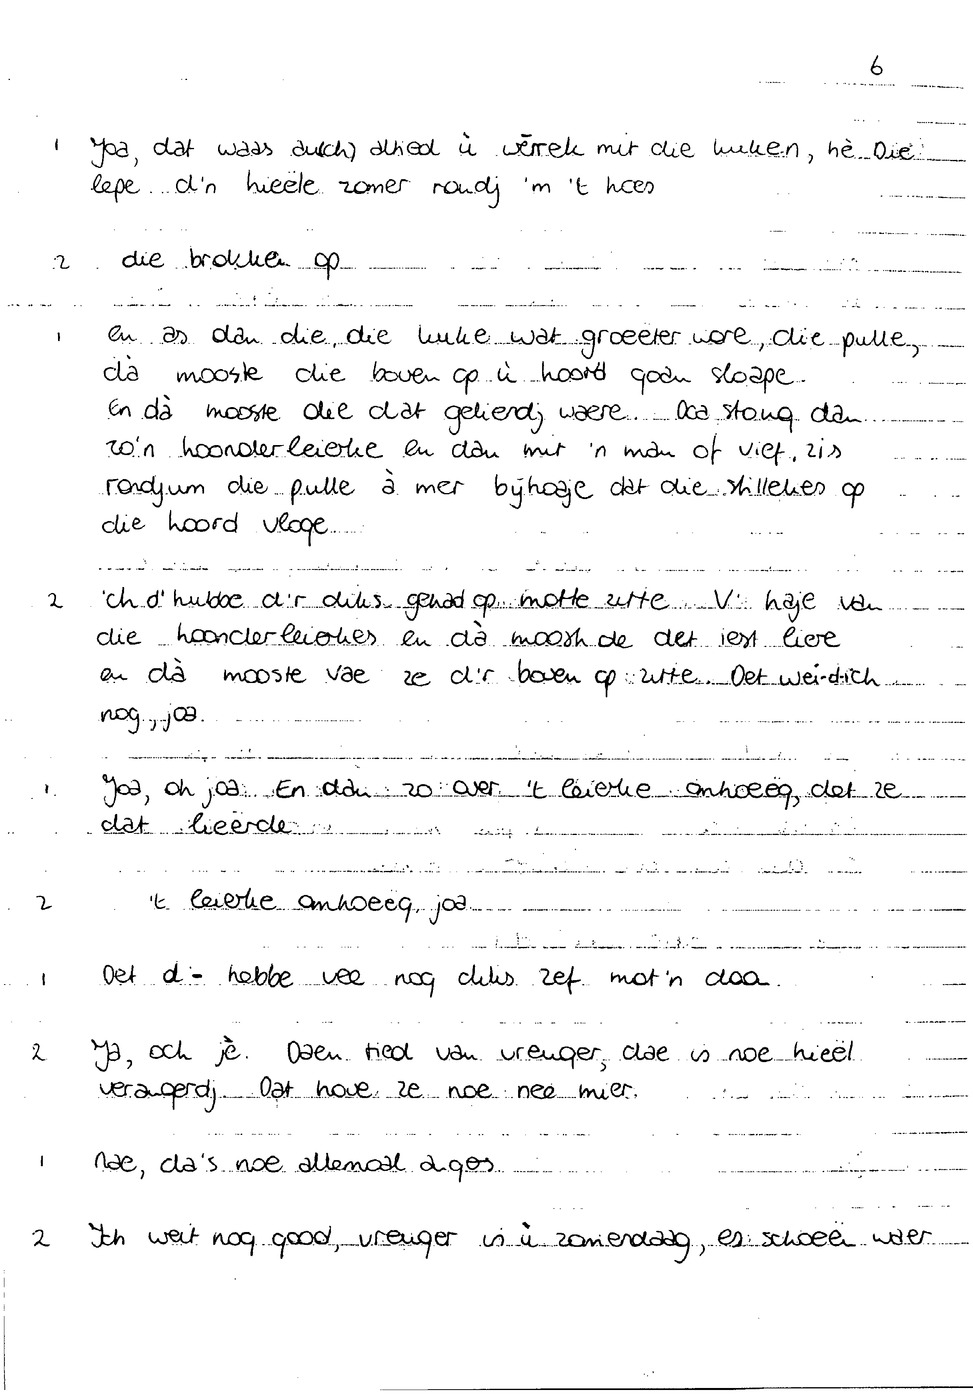 6
1 Yoa, dat waas du(ch) altied ù wērrek mit die kuken, hè. Die
lepe d'n hieële zomer roudj 'm 't hoes
2 die brokken op
1 en as dan die, die kuke wat groeëter wore, die pulle,
dà mooste die boven op ù hoord goan sloape.
En dà mooste die dat gelierdj waere. Daa stong dan
zo'n hoonderleierke en dan mit 'n man of vief, zis
rondjum die pulle à mer bijhoaje dat die stillekes op
die hoord vloge
2 'ch d'hubbe d'r diks gehad op motte zitte. V' haje van
die hoonderleierkes en dà moosh de det iest liere
en dà mooste vae ze d'r boven op zitte. Det wei-d-ich
nog, joa.
1. Yoa, oh joa. En dan zo over 't leierke omhoeëg, det ze
dat lieërde
2 't leierke omhoeëg, joa
1 Det d - hebbe vee nog diks zef mot'n doa.
2 Ja, och jè. Daen tied van vreuger, dae is noe hieël
verangerdj. Dat hove ze noe nee mier.
1 Nae, da's noe allemoal angos
2 Ich weit nog good, vreuger is ù zomerdaag, es schoeën waer